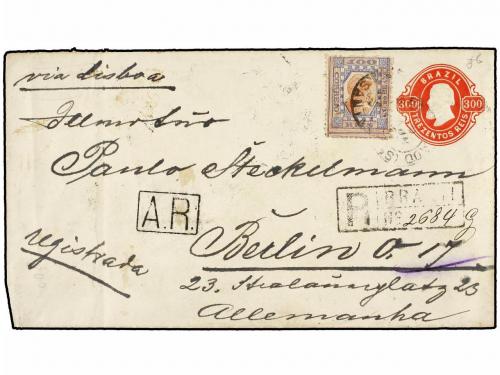 36
via Lisboa
BRAZIL
300 300
TREZENTOS REIS
100
Illmo Snr
Paulo Steckelmann
A.R.
R BRAZIL
Nº 2684 g
registrada
Berlin O. 17
23. Stralauerplatz 23
Allemanha